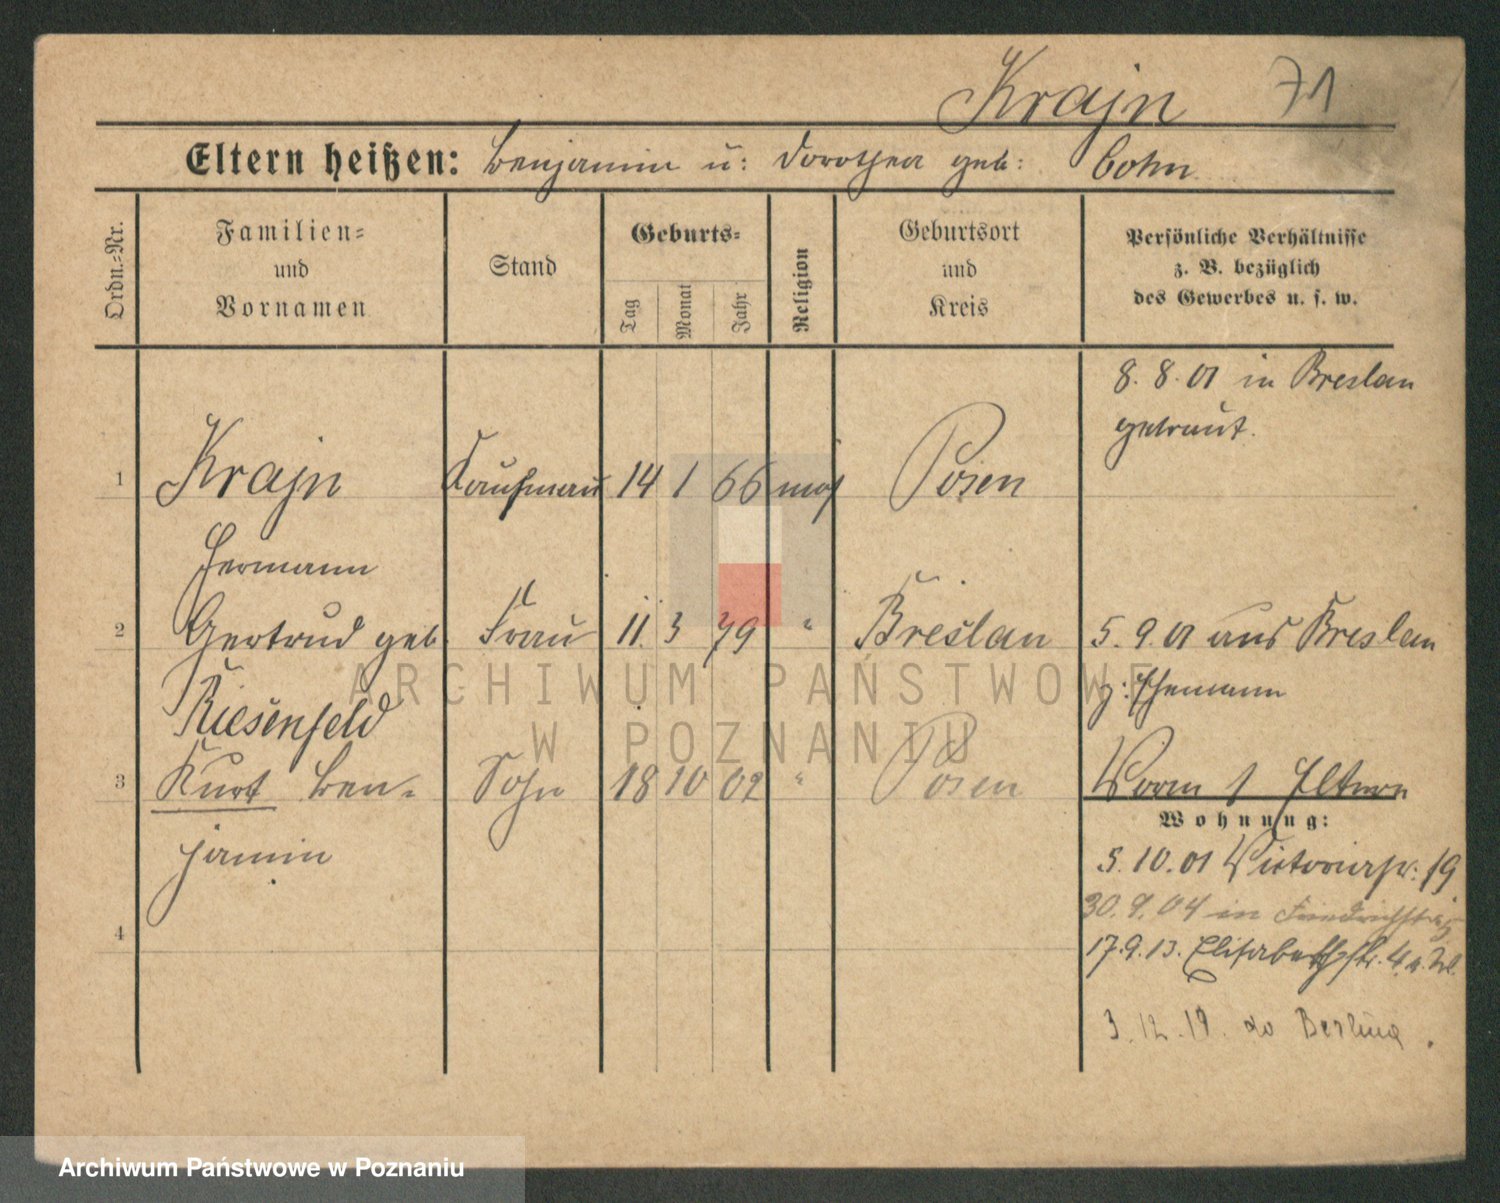 Krajn 71
Eltern heißen: Benjamin u: Dorothea geb: Cohn
Ordn.-Nr.
Familien=
und
Vornamen
Stand
Geburts=
Tag
Monat
Jahr
Religion
Geburtsort
und
Kreis
Persönliche Verhältnisse
z. B. bezüglich
des Gewerbes u. s. w.
8. 8. 01 in Breslau
getraut.
1 Krajn Kaufmann 14 1 66 mos Posen
Hermann
2 Gertrud geb. Frau 11. 3 79 " Breslau 5. 9. 01 aus Breslau
Riesenfeld z: Ehemann
3 Kurt Ben- Sohn 18 10 02 " Posen Worm 1 Eltern
jamin
Wohnung:
5. 10. 01 Victoriastr: 19
30. 9. 04 in
4
17. 9. 13. Elisabethstr. 4
3. 12. 19. do Berlina
ARCHIWUM PAŃSTWOWE
W POZNANIU
Archiwum Państwowe w Poznaniu